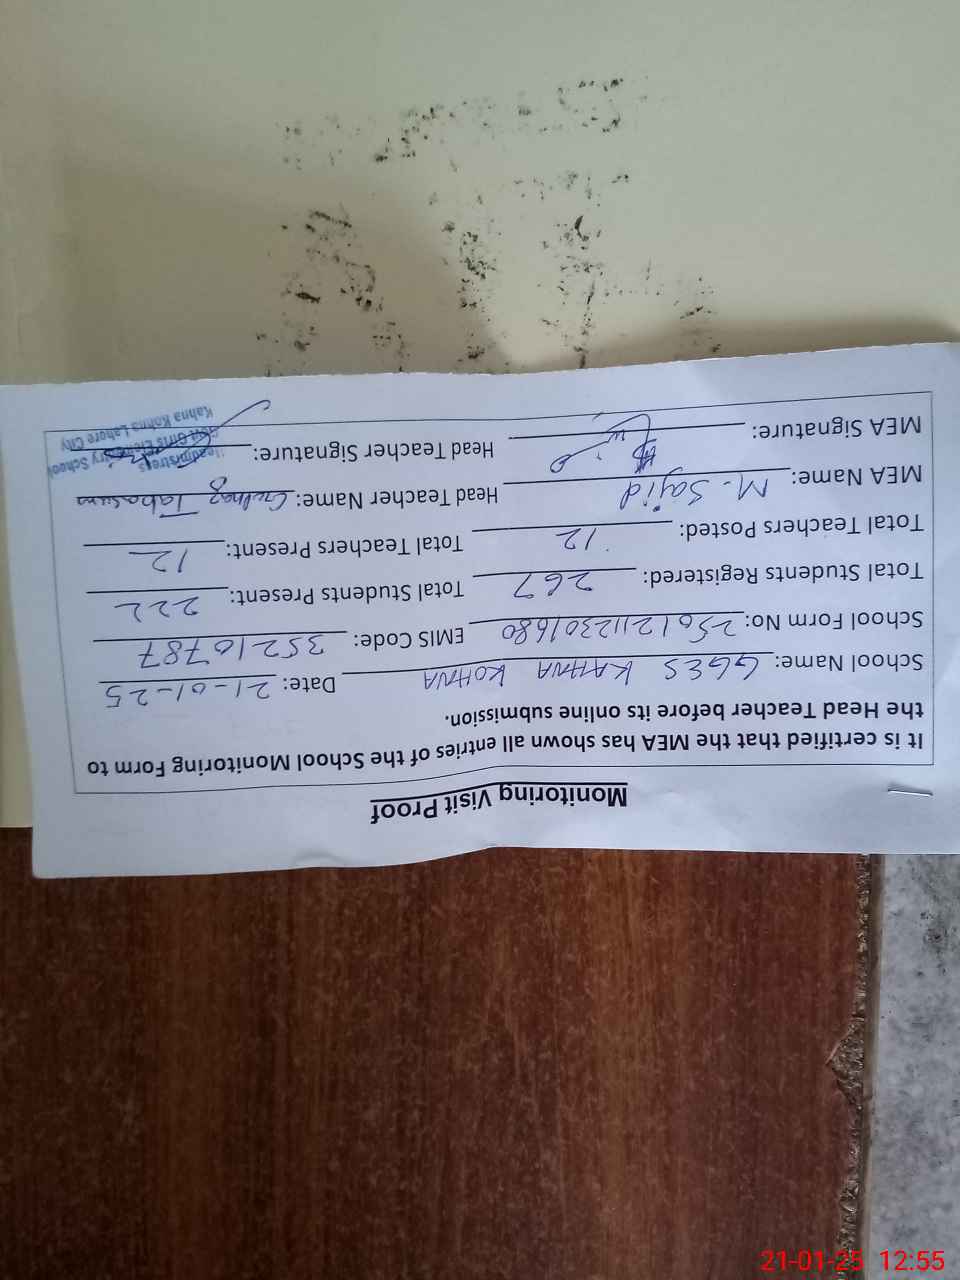 Monitoring Visit Proof
It is certified that the MEA has shown all entries of the School Monitoring Form to
the Head Teacher before its online submission.
School Name: GGES KAHNA KOHNA Date: 21-01-25
School Form No: 25012112301680 EMIS Code: 35210787
Total Students Registered: 267 Total Students Present: 222
Total Teachers Posted: 12 Total Teachers Present: 12
MEA Name: M. Sajid Head Teacher Name: Gulnaz Tabasum
MEA Signature: Head Teacher Signature:
Headmistress
Govt Girls Elementry School
Kahna Kohna Lahore City
21-01-25 12:55